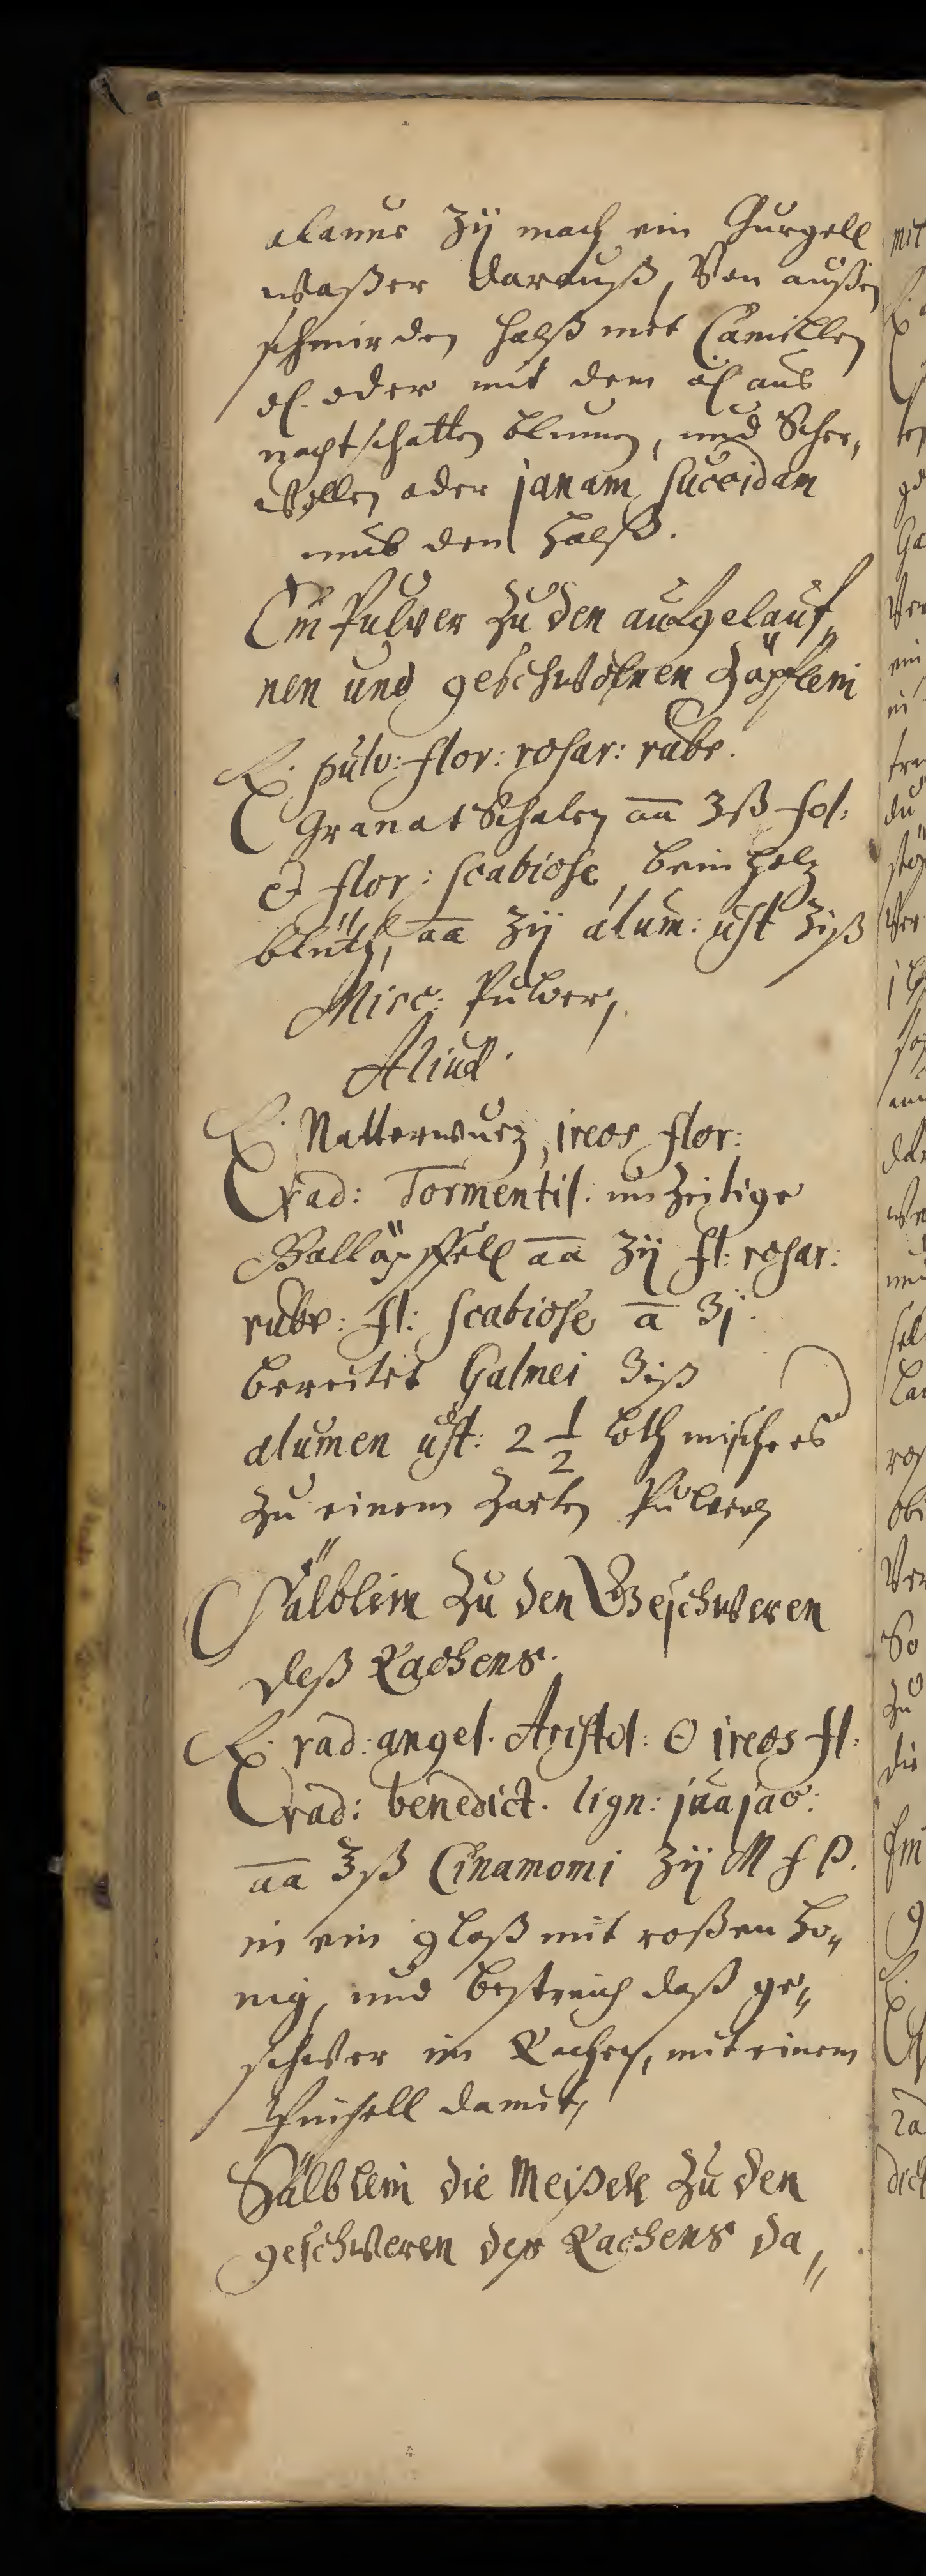 alaunes ʒij mach ein Gurgell
waßer darauß, Von außen
schmir den halß mit Camillen
öl. oder mit dem öl aus
nachtschatten blumen, und Scher,
Wollen oder lanam succidam
umb den halß.
Ein Pulver zu den aufgelauf„
nen und geschwolnen Zäpflein
℞. pulv: flor: rosar: rubr.
Granat Schalen āā ʒß fol:
et flor: scabiose, beinholz
blüth, āā ʒij alum: ust ʒiß
Misc: Pulver,
Aliud.
℞. Natterwurz, ireos flor:
rad: Tormentil. unzeitige
Galläpffell āā ʒij fl: rosar:
rubr: fl: scabiose ā ʒj.
bereitet Galmei ʒiß
alumen ust: 2 1/2 loth misch es
zu einem zarten Pulver
Sälblein zu den Geschweren
deß Rachens.
℞. rad: angel. Aristol: ʘ ireos fl:
rad: benedict. lign: juajac:
āā ʒß Cinamomi ʒij M f P.
in ein glaß mit roßen ho„
nig, und bestreich daß ge„
schwer im Rachen, mit einem
Pinsell damit,
Sälblein die Meißek zu den
geschweren des Rachens da„